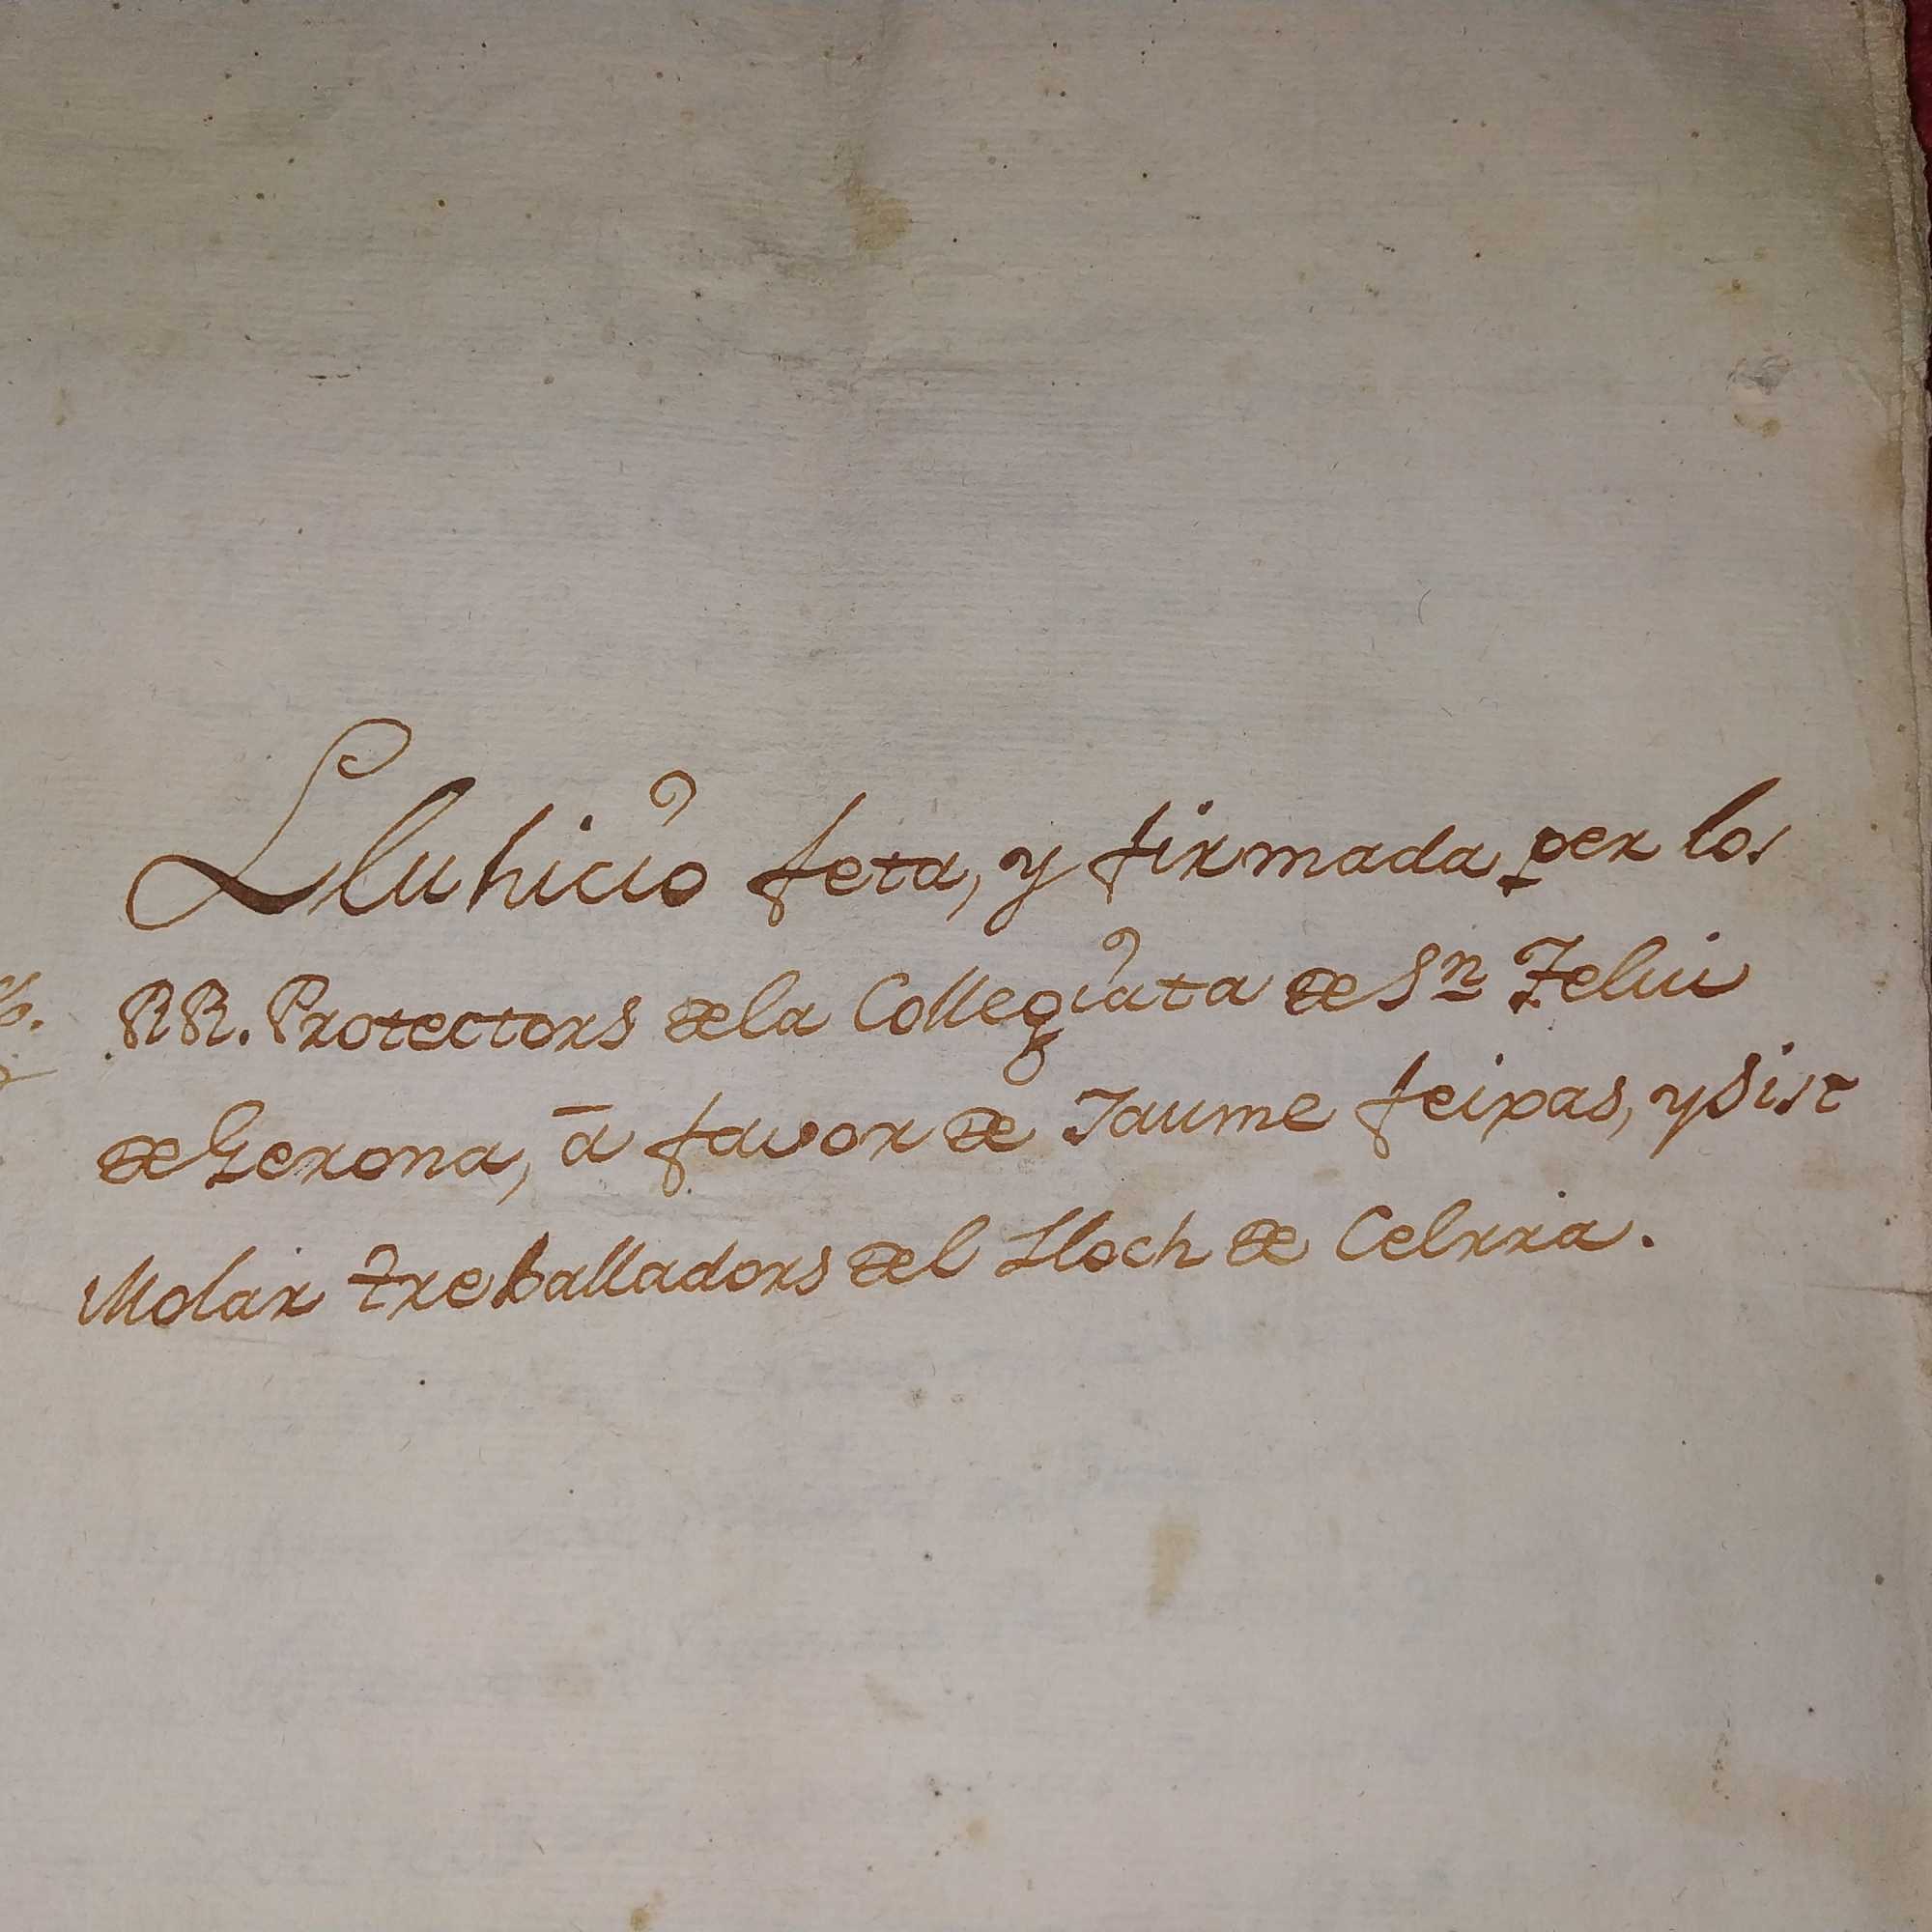 Lluhicio feta, y firmada per los
RR. Protectors de la Collegiata de Sn. Feliu
de Gerona, a favor de Jaume feixas, y Sist
Molar treballadors del Lloch de Celrra.